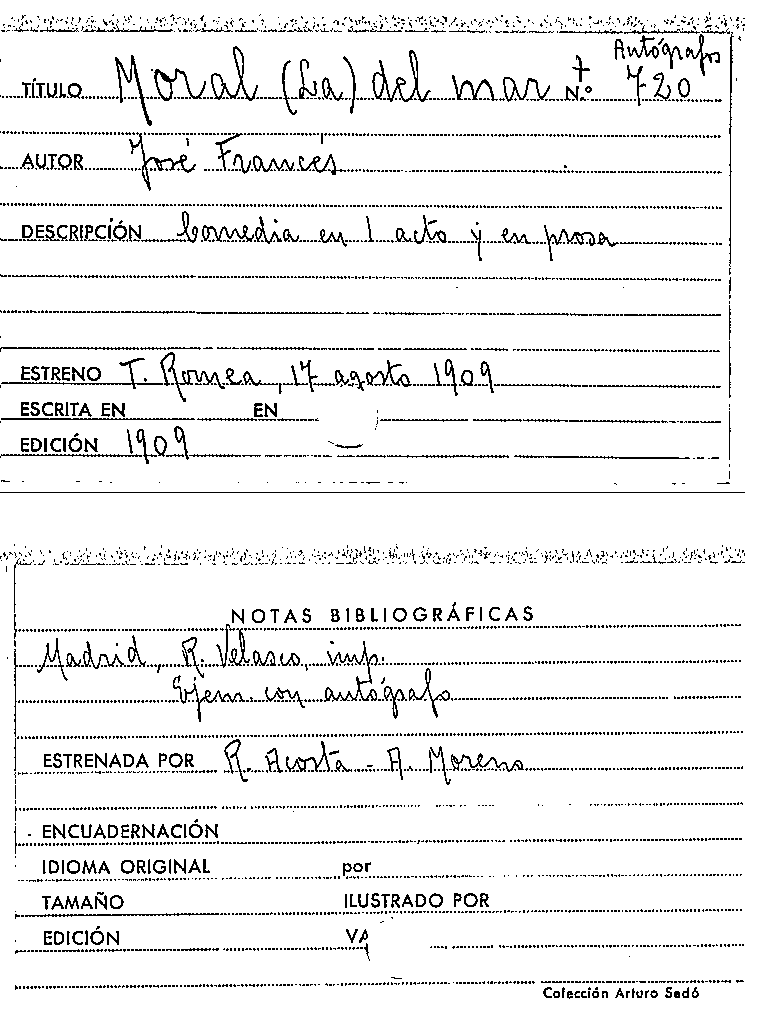 Autógrafos
TÍTULO Moral (La) del mar N.º 720
AUTOR José Francés
DESCRIPCIÓN Comedia en 1 acto y en prosa
ESTRENO T. Romea, 17 agosto 1909
ESCRITA EN EN
EDICIÓN 1909
NOTAS BIBLIOGRÁFICAS
Madrid, R. Velasco, imp.
Ejem. con autógrafo
ESTRENADA POR R. Acosta - A. Moreno
ENCUADERNACIÓN
IDIOMA ORIGINAL por
TAMAÑO ILUSTRADO POR
EDICIÓN
Colección Arturo Sedó